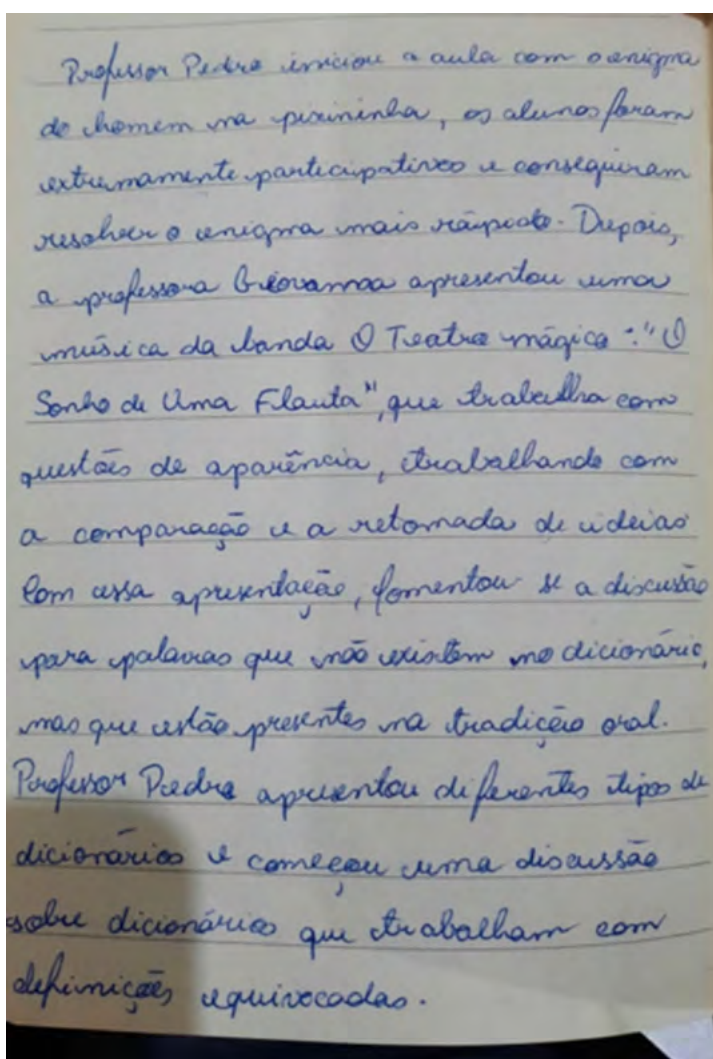 Professor Pedro iniciou a aula com o enigma
do homem na piscininha, os alunos foram
extremamente participativos e conseguiram
resolver o enigma mais rápido. Depois,
a professora Giovanna apresentou uma
música da banda O Teatro mágico: "O
Sonho de Uma Flauta", que trabalha com
questões de aparência, trabalhando com
a comparação e a retomada de ideias
Com essa apresentação, fomentou se a discussão
para palavras que não existem no dicionário,
mas que estão presentes na tradição oral.
Professor Pedro apresentou diferentes tipos de
dicionários e começou uma discussão
sobre dicionários que trabalham com
definições equivocadas.